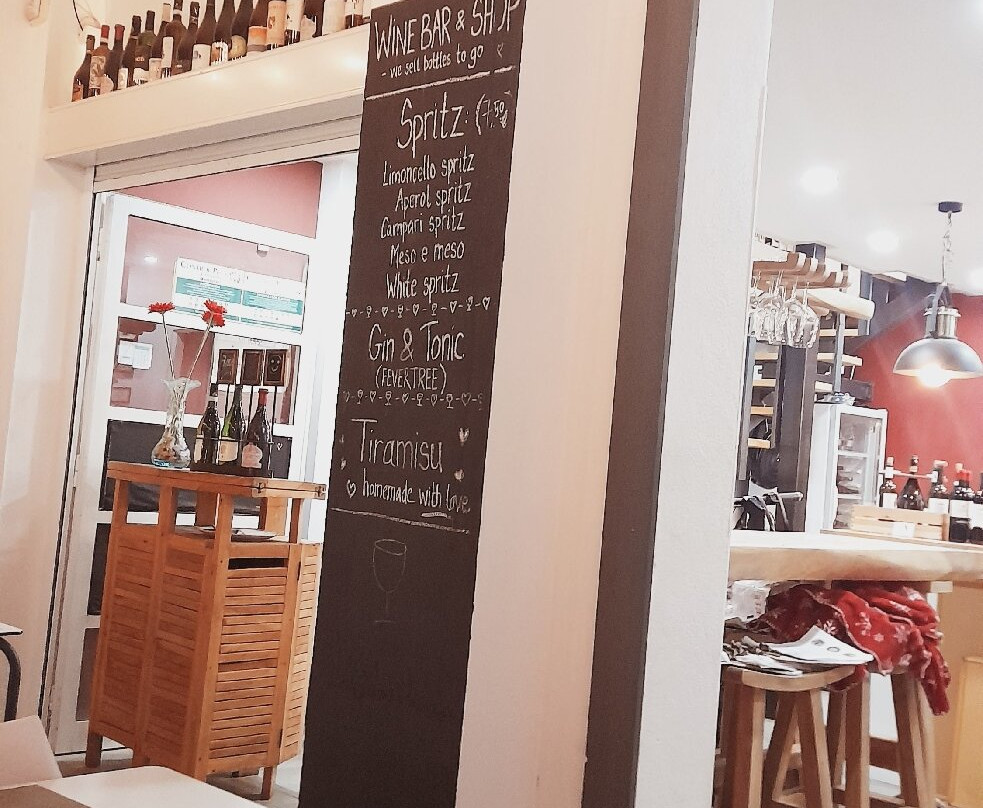 WINE BAR & SHOP
- we sell bottles to go
Spritz: (7,50)
Limoncello spritz
Aperol spritz
Campari spritz
Meso e meso
White spritz
Gin & Tonic
(FEVERTREE)
Tiramisu
homemade with love